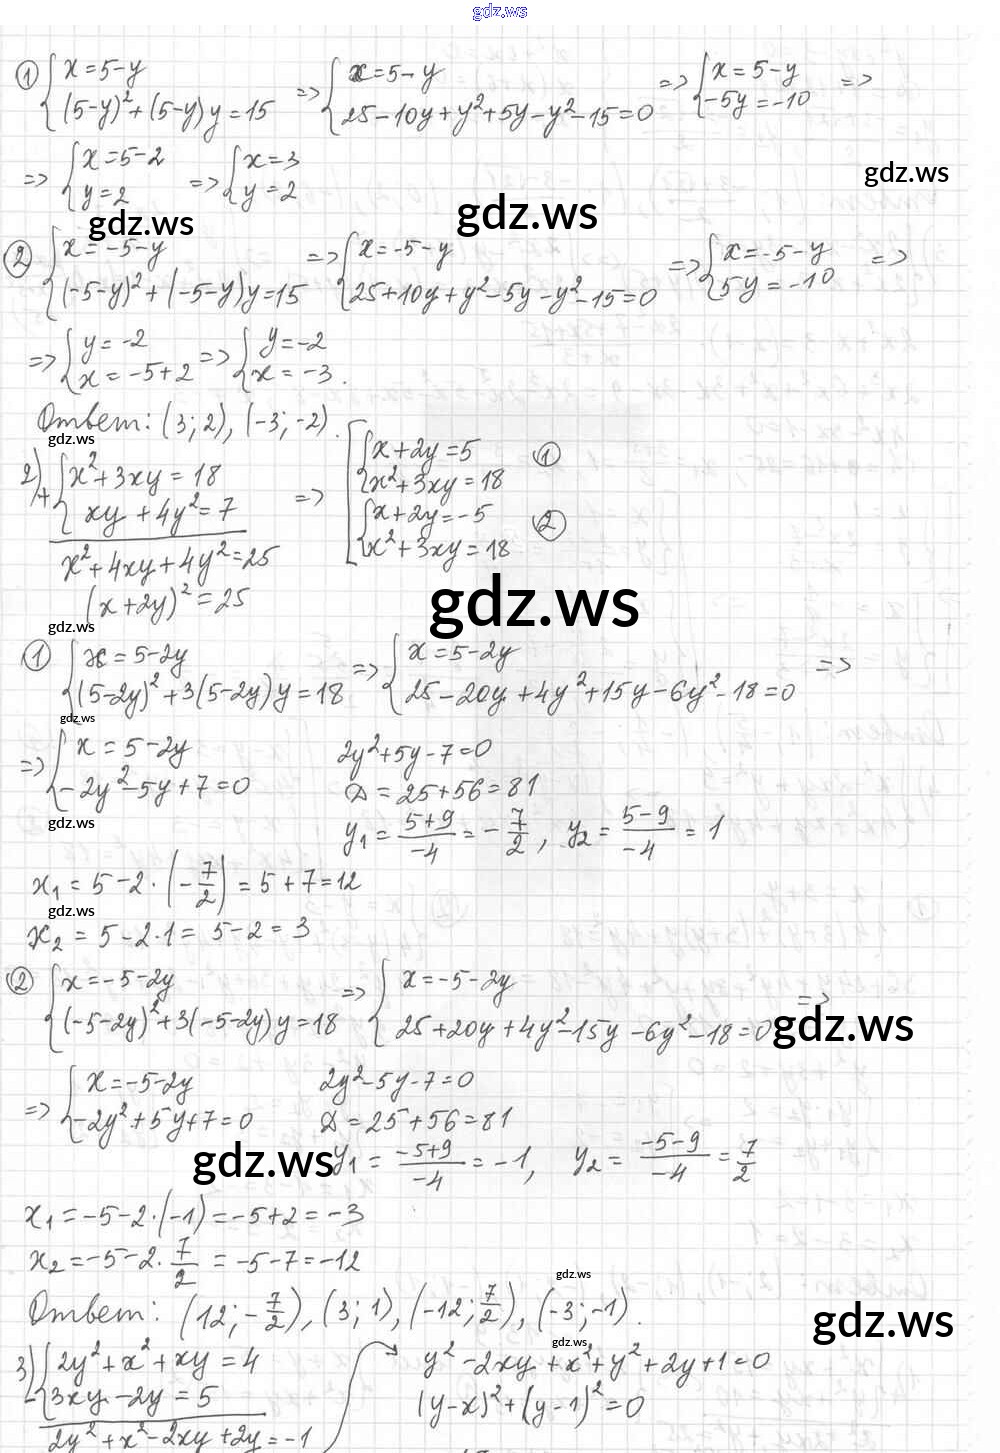 gdz.ws
① { x = 5-y ; (5-y)² + (5-y) y = 15 => { x = 5-y ; 25-10y+y²+5y-y²-15=0 => { x = 5-y ; -5y = -10 =>
gdz.ws
=> { x = 5-2 ; y = 2 => { x = 3 ; y = 2
gdz.ws gdz.ws
② { x = -5-y ; (-5-y)² + (-5-y)y = 15 => { x = -5-y ; 25+10y+y²-5y-y²-15=0 => { x = -5-y ; 5y = -10 =>
=> { y = -2 ; x = -5+2 => { y = -2 ; x = -3.
Ответ: (3; 2), (-3; -2).
gdz.ws
2) + { x²+3xy = 18 ; xy + 4y² = 7 => [ { x+2y = 5 ; x²+3xy = 18 ① { x+2y = -5 ; x²+3xy = 18 ②
x²+4xy+4y² = 25
(x+2y)² = 25
gdz.ws
gdz.ws
① { x = 5-2y ; (5-2y)²+3(5-2y)y = 18 => { x = 5-2y ; 25-20y+4y²+15y-6y²-18=0 =>
gdz.ws
=> { x = 5-2y ; -2y²-5y+7=0
2y²+5y-7=0
D = 25+56 = 81
gdz.ws
y₁ = (5+9)/(-4) = -7/2, y₂ = (5-9)/(-4) = 1
x₁ = 5-2·(-7/2) = 5+7=12
gdz.ws
x₂ = 5-2·1 = 5-2 = 3
② { x = -5-2y ; (-5-2y)²+3(-5-2y)y = 18 => { x = -5-2y ; 25+20y+4y²-15y-6y²-18=0 =>
gdz.ws
=> { x = -5-2y ; -2y²+5y+7=0
2y²-5y-7=0
D = 25+56=81
gdz.ws
y₁ = (-5+9)/(-4) = -1, y₂ = (-5-9)/(-4) = 7/2
x₁ = -5-2·(-1) = -5+2 = -3
x₂ = -5-2·7/2 = -5-7 = -12
gdz.ws
Ответ: (12; -7/2), (3; 1), (-12; 7/2), (-3; -1).
gdz.ws
gdz.ws
3) - { 2y²+x²+xy = 4 ; 3xy-2y = 5
2y²+x²-2xy+2y = -1
y²-2xy+x²+y²+2y+1=0
(y-x)²+(y-1)²=0